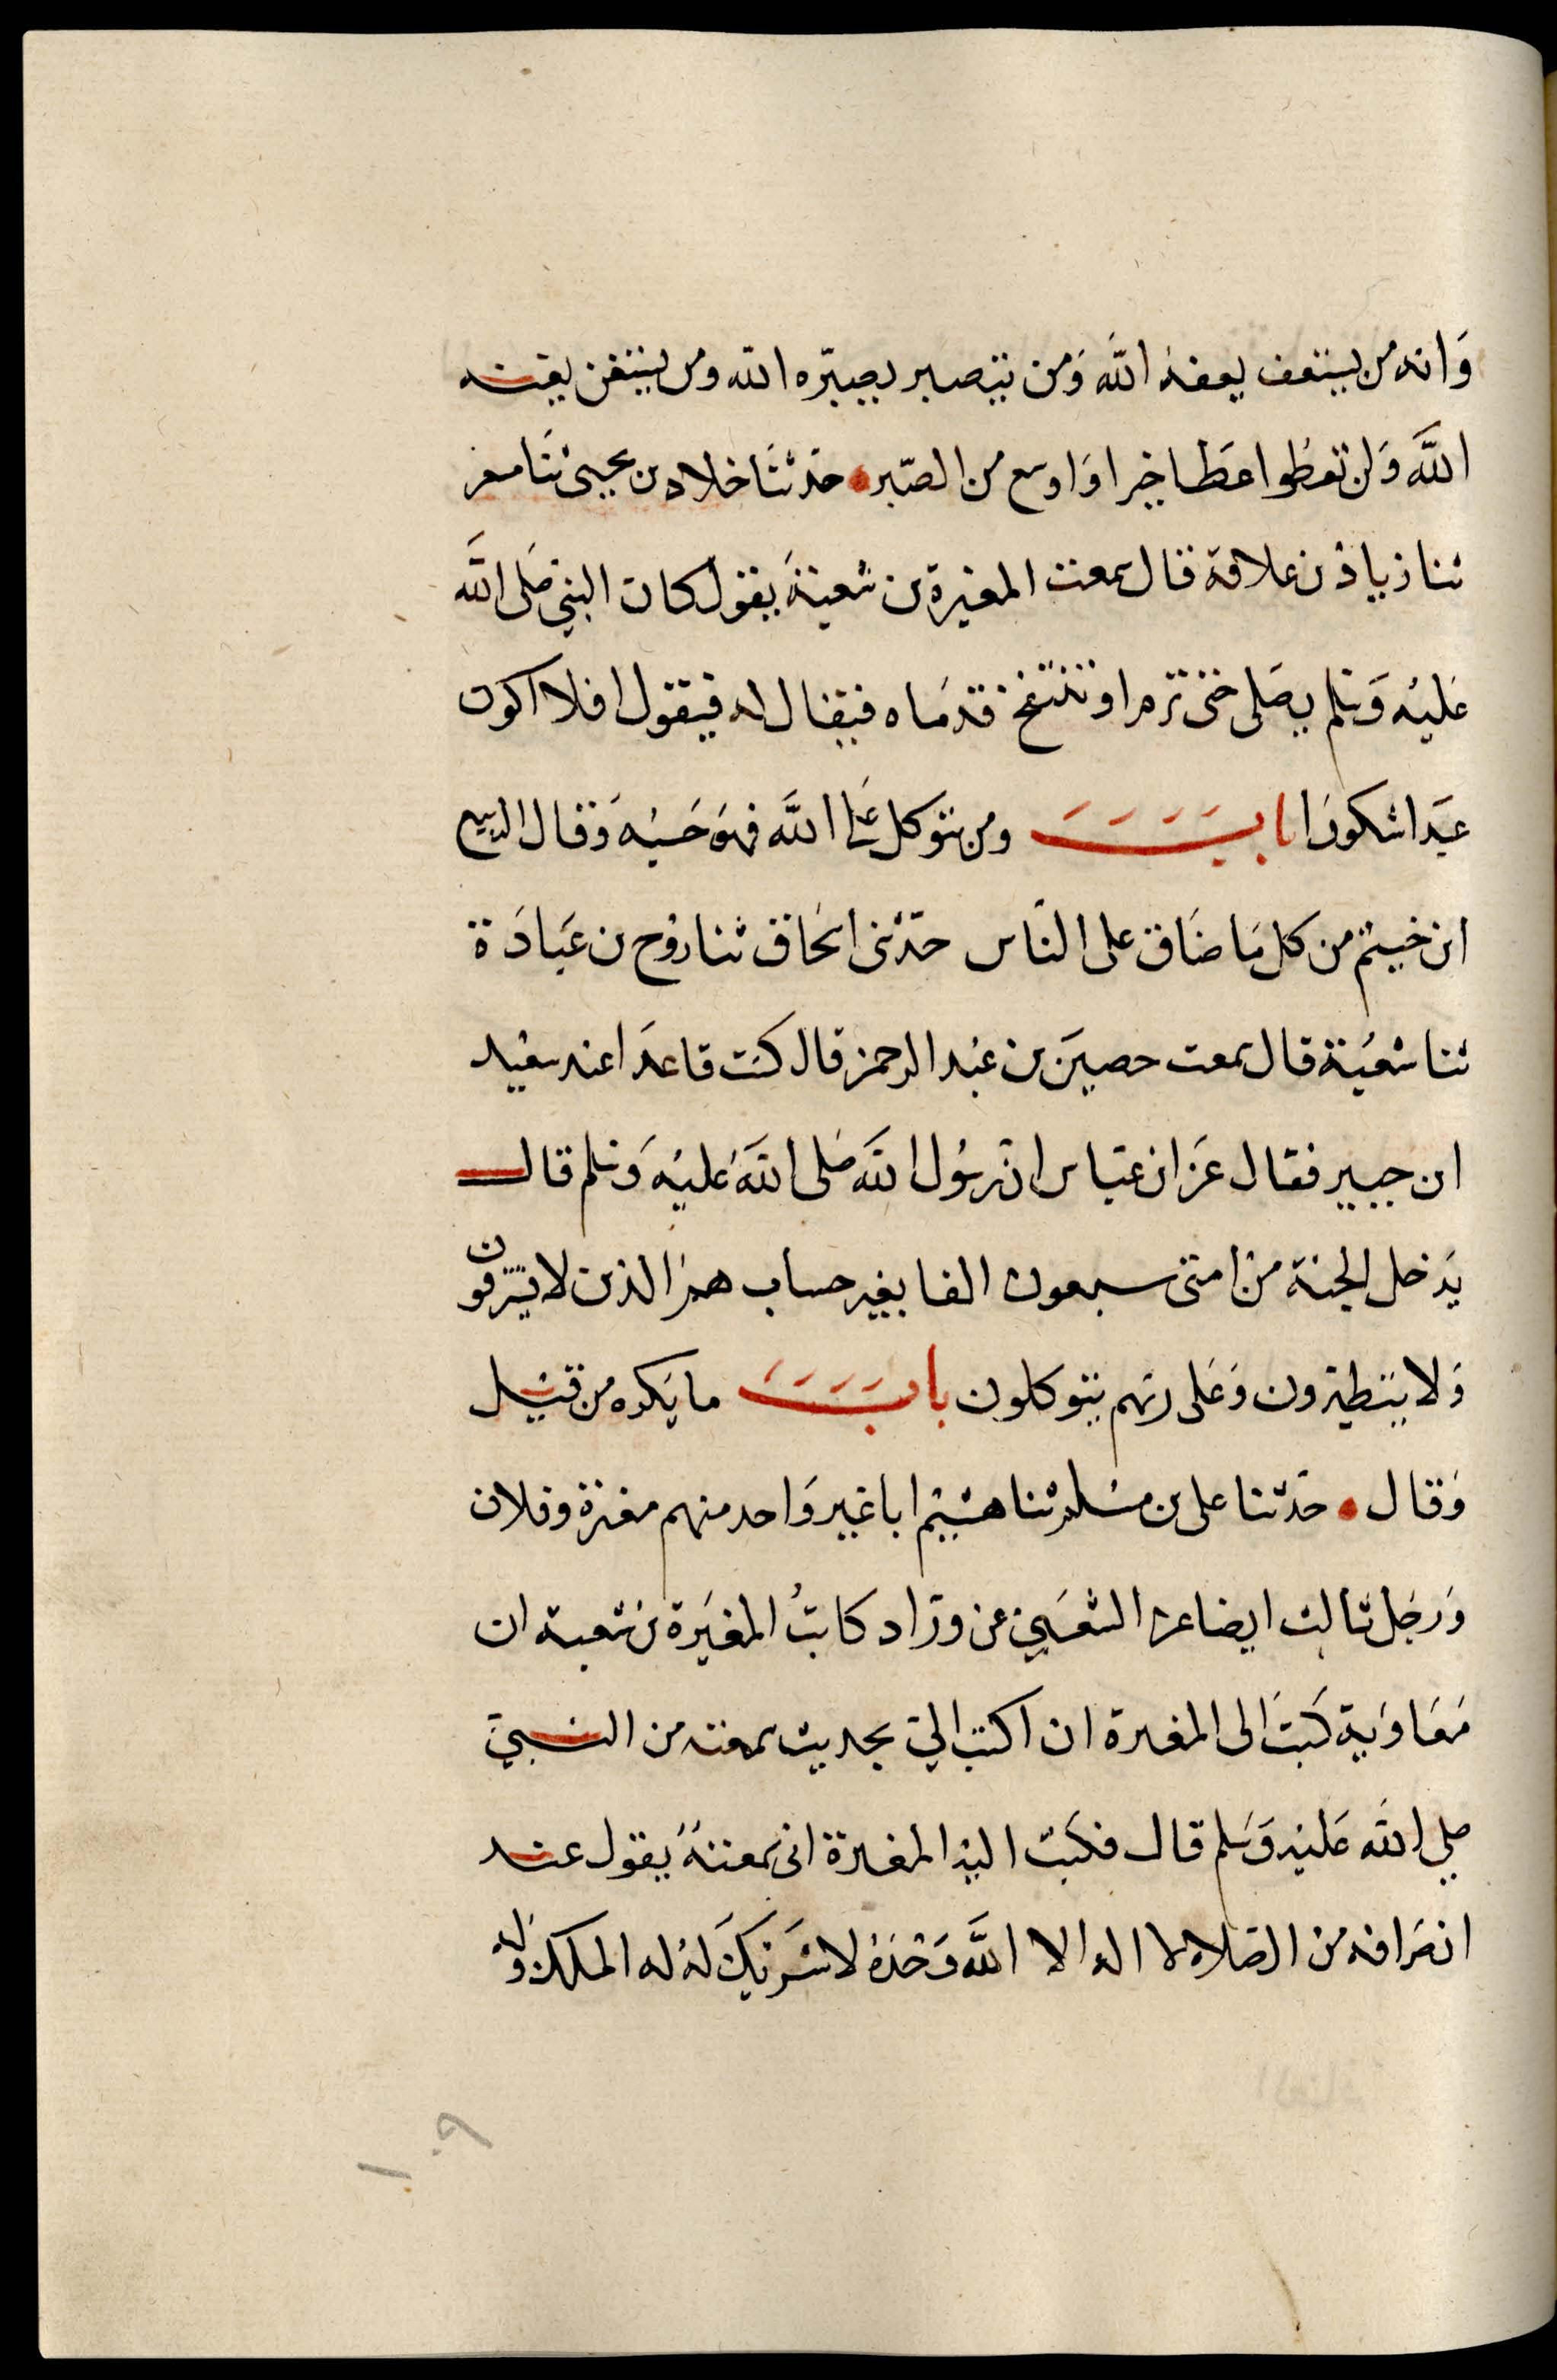 وانه من يستعف يعفه الله ومن يتصبر يصبره الله ومن يستغن يغنه
الله ولن تعطوا عطا خيرا واوسع من الصبر حدثنا خلاد بن يحيى ثنا مسعر
ثنا زياد بن علاقة قال سمعت المغيرة بن شعبة يقول كان النبي صلى الله
عليه وسلم يصلى حتى ترم او تنتفخ قدماه فيقال له فيقول افلا اكون
عبدا شكورا باب ومن يتوكل على الله فهو حسبه وقال الربيع
ابن خيثم من كل ما ضاق على الناس حدثنى اسحاق ثنا روح بن عبادة
ثنا شعبة قال سمعت حصين بن عبد الرحمن قال كنت قاعدا عند سعيد
ابن جبير فقال عن ابن عباس ان رسول الله صلى الله عليه وسلم قال
يدخل الجنة من امتى سبعون الفا بغير حساب هم الذين لا يسترقون
ولا يتطيرون وعلى ربهم يتوكلون باب ما يكره من قيل
وقال حدثنا على بن مسلم ثنا هشيم ابا غير واحد منهم مغيرة وفلان
ورجل ثالث ايضا عن الشعبي عن وراد كاتب المغيرة بن شعبة ان
معاوية كتب الى المغيرة ان اكتب الي بحديث سمعته من النبي
صلى الله عليه وسلم قال فكتب اليه المغيرة انى سمعته يقول عند
انصرافه من الصلاه لا اله الا الله وحده لا شريك له له الملك وله
١٠٩